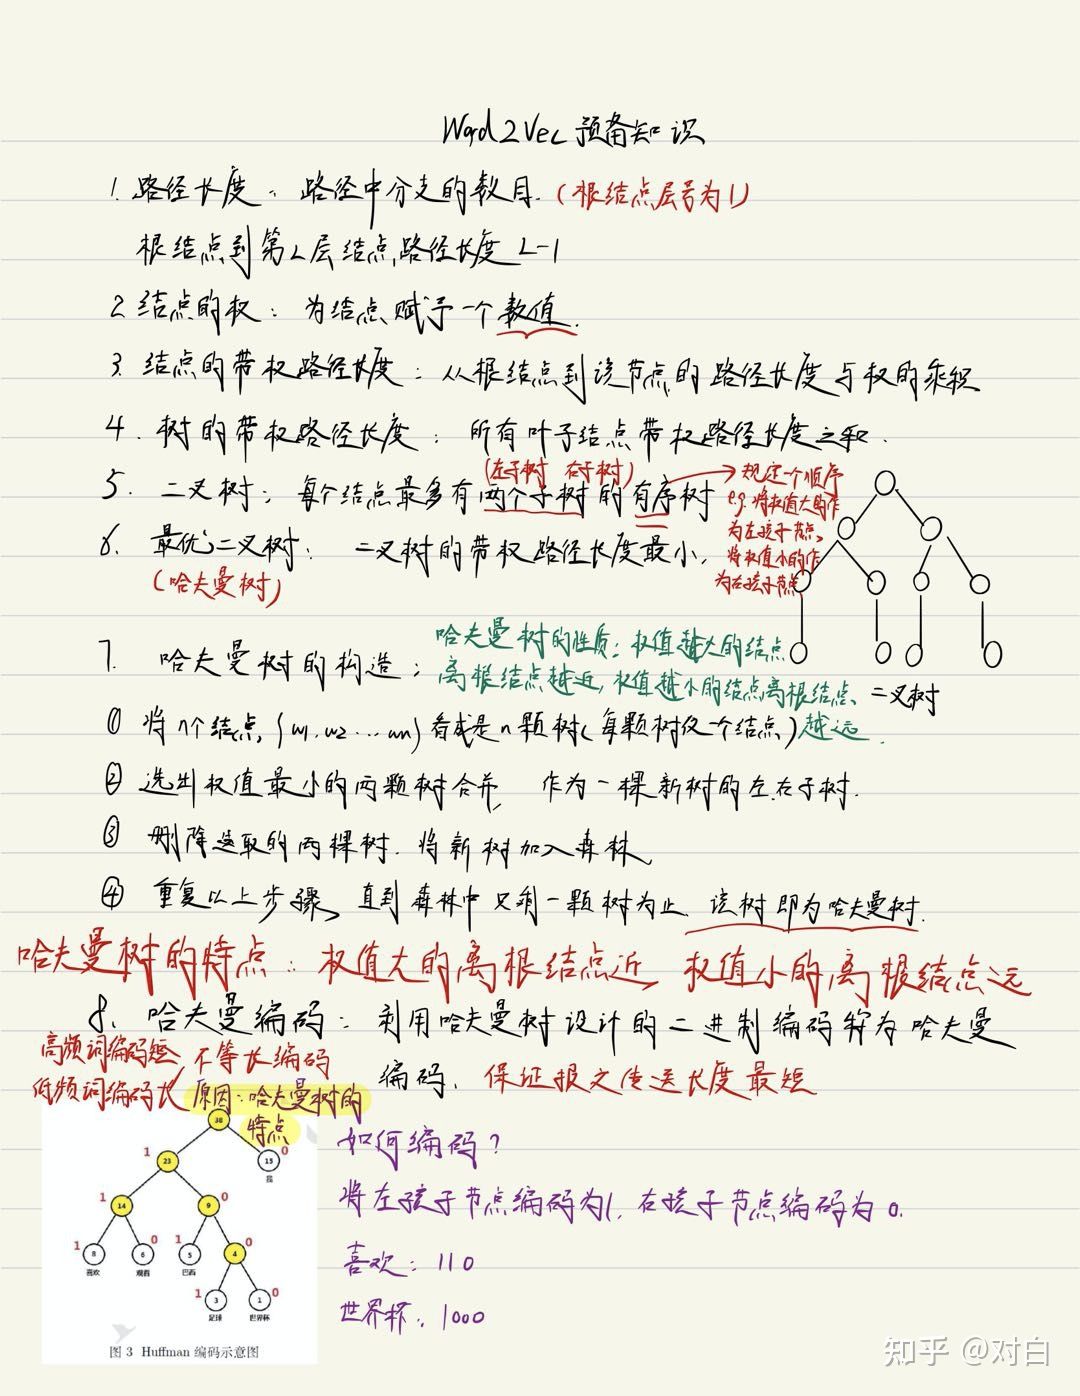 Word2Vec 预备知识
1. 路径长度: 路径中分支的数目. (根结点层号为1)
根结点到第L层结点路径长度 L-1
2 结点的权: 为结点赋予一个数值.
3. 结点的带权路径长度: 从根结点到该节点的路径长度与权的乘积
4. 树的带权路径长度: 所有叶子结点带权路径长度之和.
(左子树 右子树)
5. 二叉树: 每个结点最多有两个子树的有序树
规定一个顺序
e.g. 将权值大的作
为左孩子节点,
将权值小的作
为右孩子节点
6. 最优二叉树: 二叉树的带权路径长度最小.
(哈夫曼树)
二叉树
7. 哈夫曼树的构造:
哈夫曼树的性质: 权值越大的结点
离根结点越近, 权值越小的结点离根结点
越远.
① 将n个结点, {w1. w2 ... wn} 看成是n颗树(每颗树仅一个结点)
② 选出权值最小的两颗树合并, 作为一棵新树的左.右子树.
③ 删除选取的两棵树. 将新树加入森林,
④ 重复以上步骤, 直到森林中只剩一颗树为止. 该树即为哈夫曼树.
哈夫曼树的特点: 权值大的离根结点近, 权值小的离根结点远
8. 哈夫曼编码: 利用哈夫曼树设计的二进制编码称为哈夫曼
编码. 保证报文传送长度最短
高频词编码短
低频词编码长
不等长编码
原因: 哈夫曼树的
特点
如何编码?
将左孩子节点编码为1, 右孩子节点编码为0.
喜欢: 110
世界杯: 1000
38
1 0
23 15
我
1 0
14 9
1 0 1 0
8 6 5 4
喜欢 观看 巴西
1 0
3 1
足球 世界杯
图 3 Huffman 编码示意图
知乎 @对白